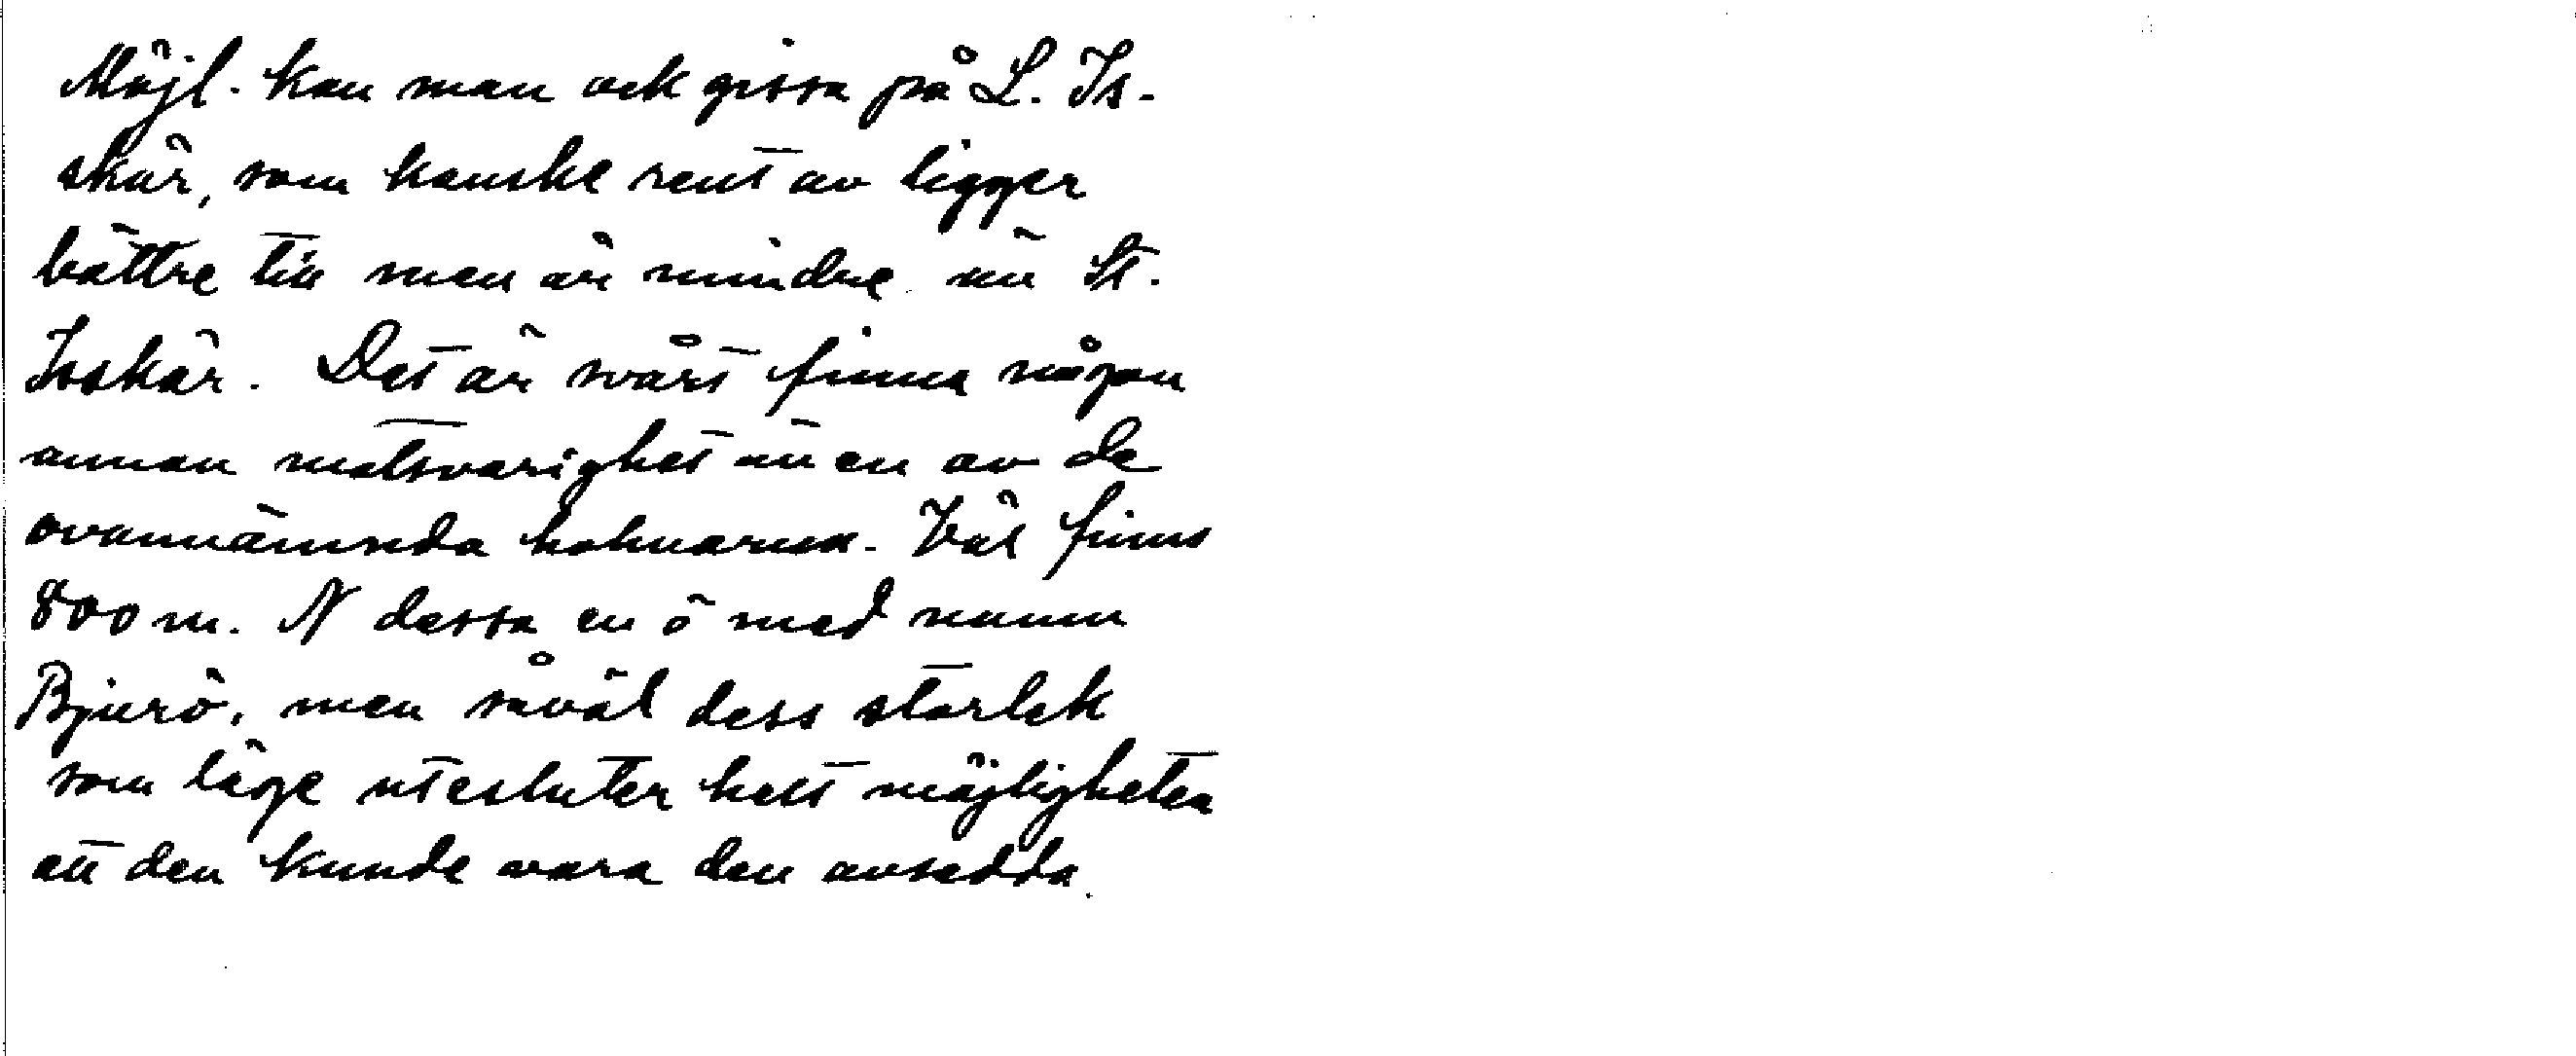 Möjl. kan man ock gissa på L. Is-
skär, som kanske rent av ligger
bättre till men är mindre än St.
Isskär. Det är svårt finna någon
annan motsvarighet än en av de
ovannämnda holmarna. Väl finns
800 m. N dessa en ö med namn
Bjurö, men såväl dess storlek
som läge utesluter helt möjligheten
att den kunde vara den avsedda.